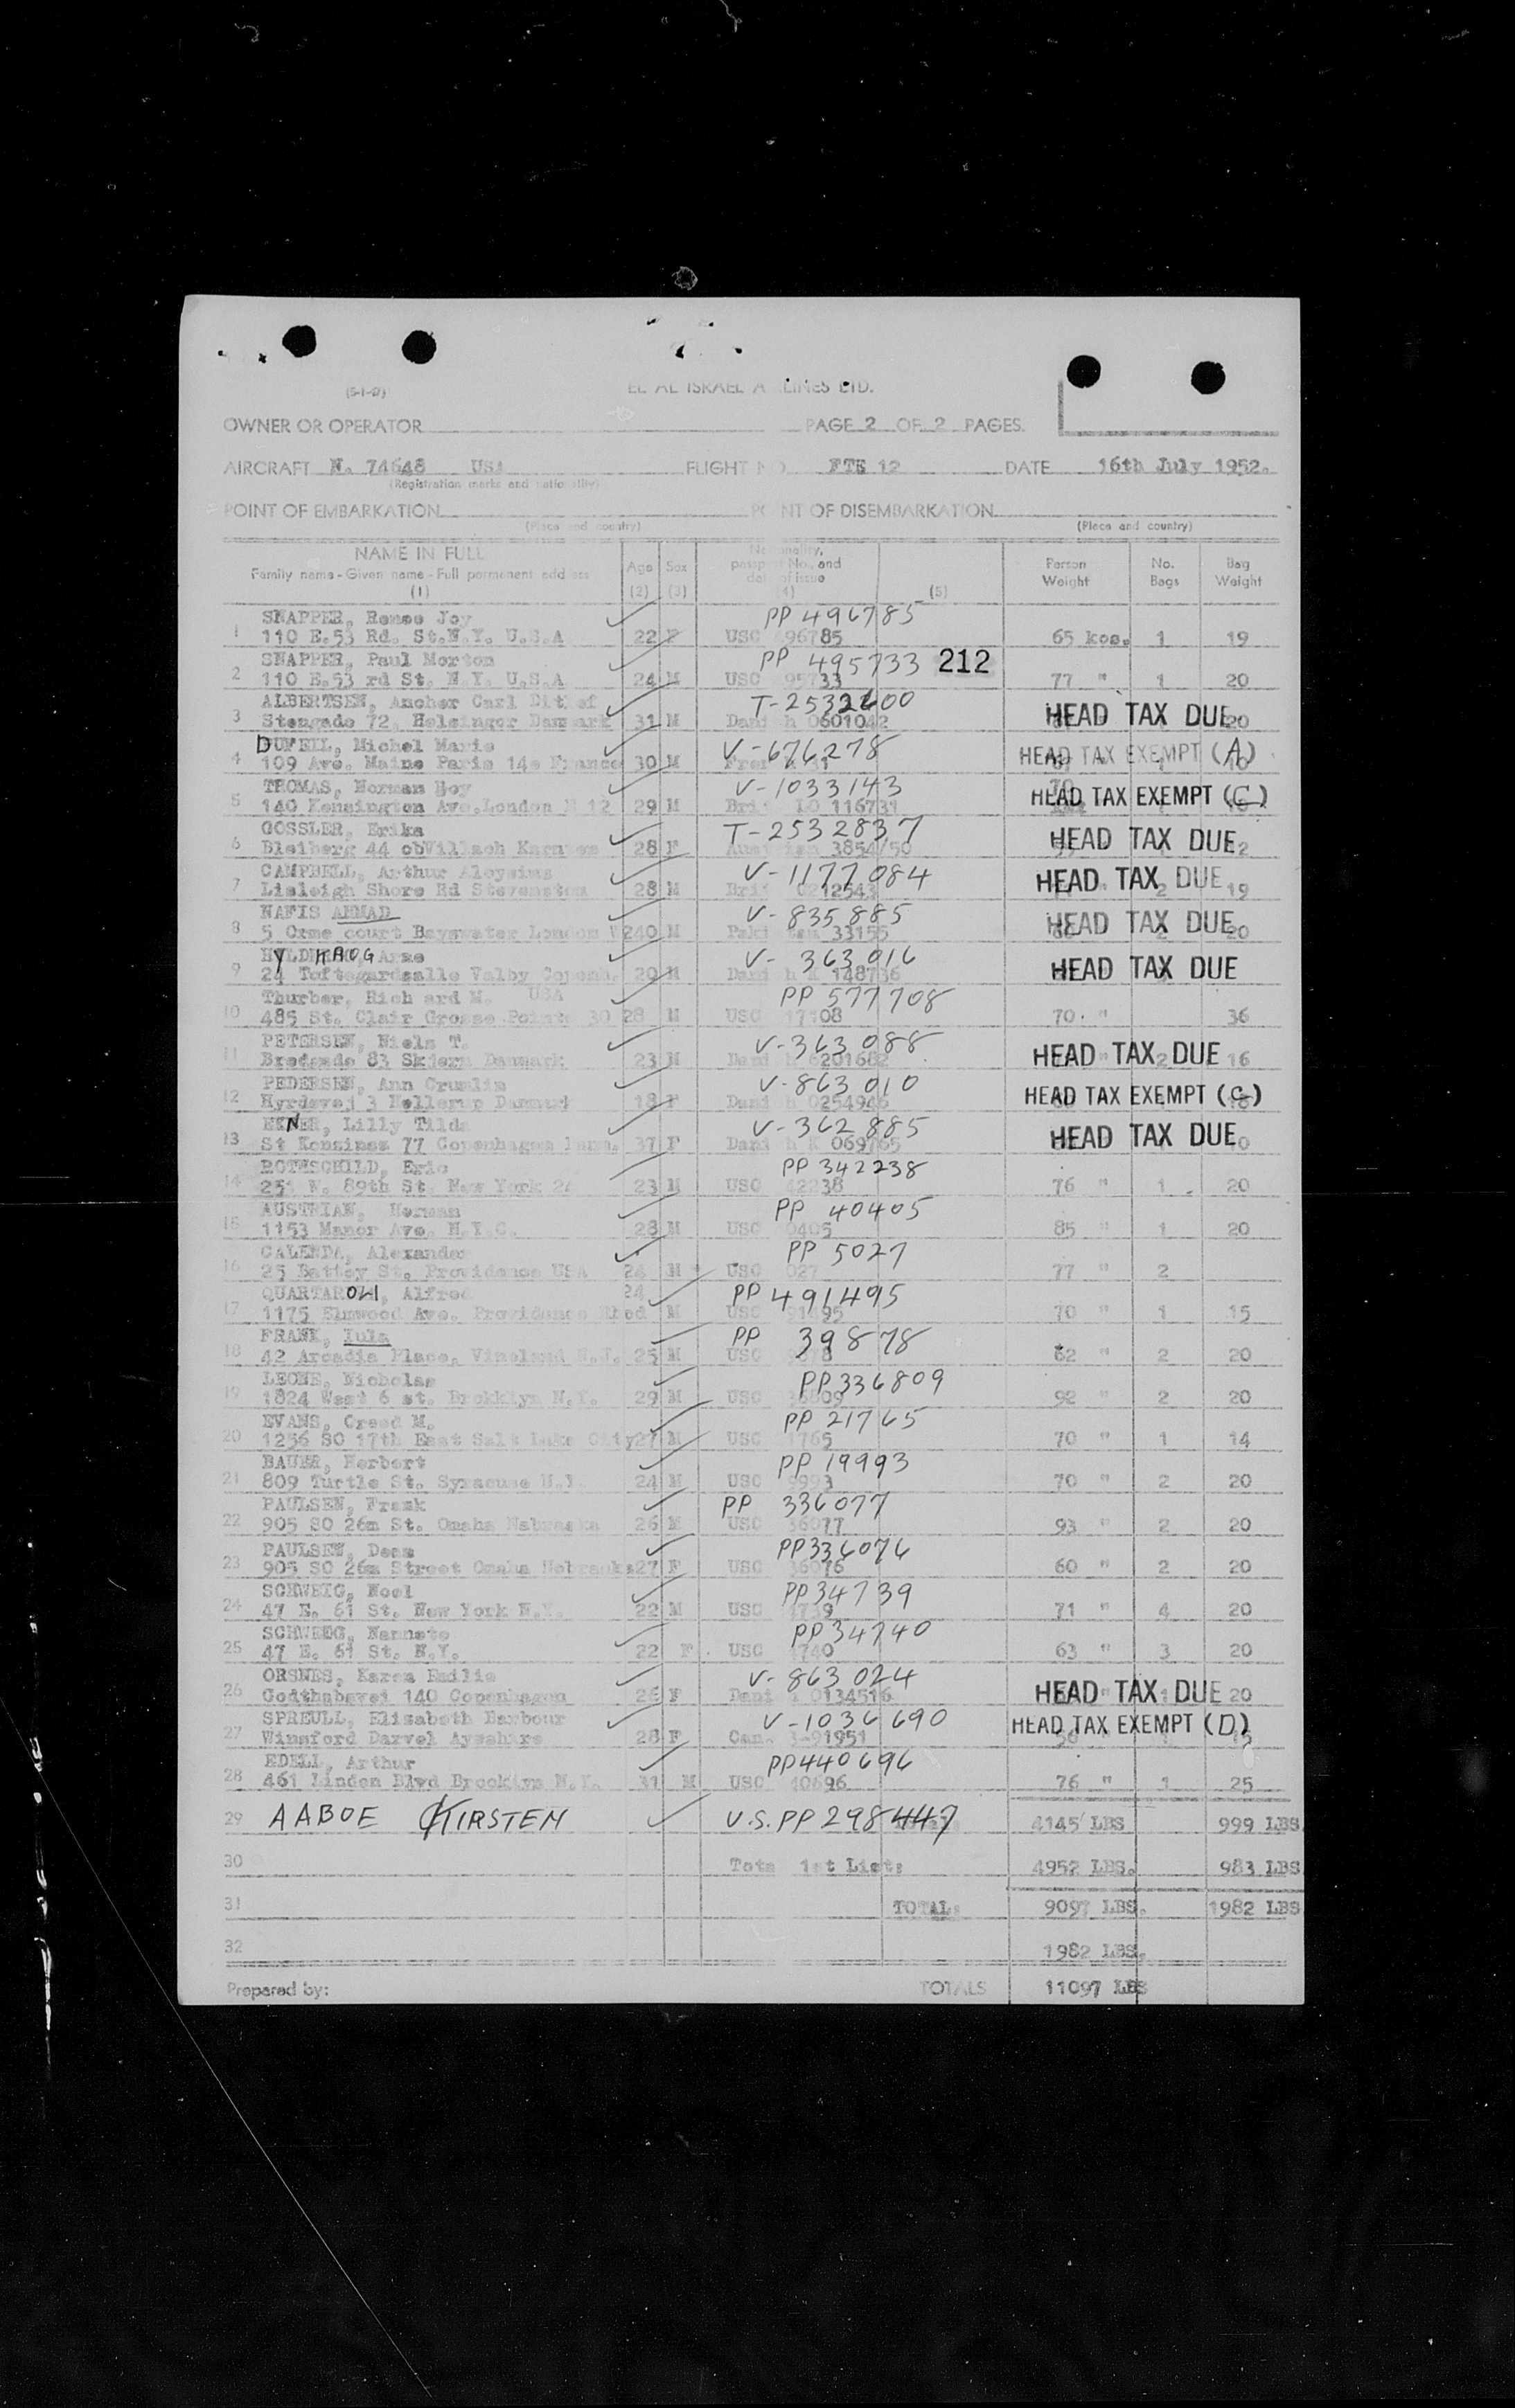 (5-1-0)
EL AL ISRAEL LINES LTD.
OWNER OR OPERATOR PAGE 2 OF 2 PAGES.
AIRCRAFT N. 74648 USA FLIGHT NO. FTE 12 DATE 16th July 1952.
(Registration marks and nationality)
POINT OF EMBARKATION POINT OF DISEMBARKATION
(Place and country) (Place and country)
NAME IN FULL
Family name - Given name - Full permanent address
(1)
Age
(2)
Sex
(3)
Nationality,
passport No. and
date of issue
(4)
(5)
Person
Weight
No.
Bags
Bag
Weight
SNAPPER, Renee Joy PP 496785
1 110 E.53 Rd. St.N.Y. U.S.A 22 F USC 496785 65 kos. 1 19
SNAPPER, Paul Morton PP 495733 212
2 110 E.53 rd St. N.Y. U.S.A 24 M USC 95733 77 " 1 20
ALBERTSEN, Ancher Carl Ditlef T-2532600
3 Stengade 72, Helsingor Danmark 31 M Danish 0601042 HEAD TAX DUE 20
Michel Marie V-676278
4 109 Ave. Maine Paris 14e France 30 M HEAD TAX EXEMPT (A)
THOMAS, Norman Hoy V-1033143
5 140 Kensington Ave. London 12 29 M LO 116731 HEAD TAX EXEMPT (C)
GOSSLER, Erika T-2532837
6 Bleiberg 44 obVillach 28 F Austrian 3854/50 HEAD TAX DUE 2
CAMPBELL, Arthur Aloysius V-1177084
7 Lisleigh Shore Rd Stevenston 28 M 0212543 HEAD TAX DUE 19
NAFIS AHMAD V-835885
8 5 Orme court Bayswater London W2 40 M 33155 HEAD TAX DUE 20
Y HAUG, Arne V-363016
9 24 Toftegardsalle Valby Copenh. 20 M Danish K 148736 HEAD TAX DUE
Thurber, Rich ard M. USA PP 577708
10 485 St. Clair Grosse Pointe 30 28 M USC 17108 70 " 36
PETERSEN, Niels T. V-363088
11 Bredgade 83 Skjern Danmark 23 M Danish 0201682 HEAD TAX DUE 16
PEDERSEN, Ann V-863010
12 Hyrdevej 3 Hellerup 18 F Danish 0254946 HEAD TAX EXEMPT (C)
Lilly Tilda V-362885
13 77 Copenhagen 37 F Danish K 069765 HEAD TAX DUE
ROTHSCHILD, Eric PP 342238
14 W. 89th St. New York 24 23 M USC 42238 76 " 1 20
AUSTRIAN, Herman PP 40405
15 1153 Manor Ave. N.Y.C. 28 M USC 0405 85 " 1 20
CALENDA, Alexander PP 5027
16 25 Battey St. Providence USA 24 M USC 027 77 " 2
QUARTAROLI, Alfred 24 PP 491495
17 1175 Elmwood Ave. Providence Rhod M USC 91495 70 " 1 15
FRANK, Iula PP 39878
18 42 Arcadia Place, Vineland N.J. 25 M USC 9878 62 " 2 20
LEONE, Nicholas PP336809
19 1824 West 6 st. Brokklyn N.Y. 29 M USC 36809 92 " 2 20
EVANS, Creed M. PP 21765
20 1256 SO 17th East Salt Lake City 27 M USC 1765 70 " 1 14
BAUER, Herbert PP 19993
21 809 Turtle St. Syracuse N.Y. 24 M USC 9993 70 " 2 20
PAULSEN, Frank PP 336077
22 905 SO 26m St. Omaha Nebraska 26 M USC 36077 93 " 2 20
PAULSEN, Dean PP336076
23 905 SO 26m Street Omaha Nebraska 27 F USC 36076 60 " 2 20
SCHWEIG, Noel PP34739
24 47 E. 61 St. New York N.Y. 22 M USC 4739 71 " 4 20
SCHWEIG, Nannete PP34740
25 47 E. 61 St. N.Y. 22 F USC 4740 63 " 3 20
ORSNES, Karen Emilie V-863024
26 Godthabsvej 140 Copenhagen 26 F Danish 0134516 HEAD TAX DUE 20
SPREULL, Elisabeth Barbour V-1036690
27 Winsford Darvel Ayshire 28 F Can. 3-91951 HEAD TAX EXEMPT (D)
EDELL, Arthur PP440696
28 461 Linden Blvd Brooklyn N.Y. 31 M USC 40696 76 " 1 25
29 AABOE KIRSTEN U.S.PP298447 4145 LBS 999 LBS
30 Total 1st List: 4952 LBS. 983 LBS
31 TOTAL: 9097 LBS. 1982 LBS
32 1982 LBS.
Prepared by: TOTALS 11097 LBS